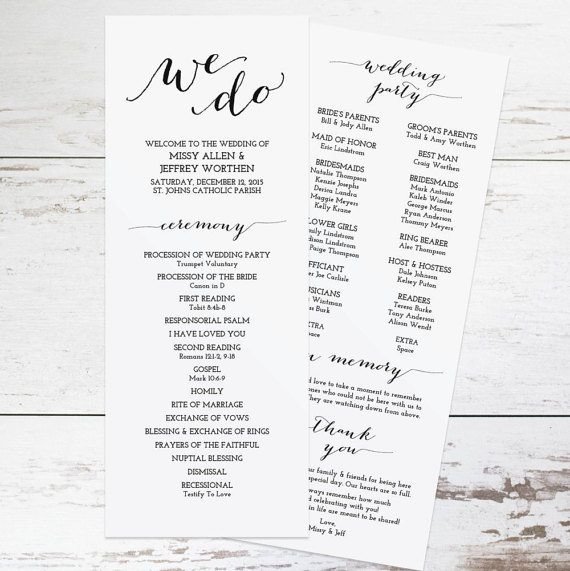 we
do
WELCOME TO THE WEDDING OF
MISSY ALLEN &
JEFFREY WORTHEN
SATURDAY, DECEMBER 12, 2015
ST. JOHNS CATHOLIC PARISH
ceremony
PROCESSION OF WEDDING PARTY
Trumpet Voluntary
PROCESSION OF THE BRIDE
Canon in D
FIRST READING
Tobit 8:4b-8
RESPONSORIAL PSALM
I HAVE LOVED YOU
SECOND READING
Romans 12:1-2, 9-18
GOSPEL
Mark 10:6-9
HOMILY
RITE OF MARRIAGE
EXCHANGE OF VOWS
BLESSING & EXCHANGE OF RINGS
PRAYERS OF THE FAITHFUL
NUPTIAL BLESSING
DISMISSAL
RECESSIONAL
Testify To Love
wedding
party
BRIDE'S PARENTS
Bill & Jody Allen
MAID OF HONOR
Eric Lindstrom
BRIDESMAIDS
Natalie Thompson
Kenzie Josephs
Derica Landra
Maggie Meyers
Kelly Krane
LOWER GIRLS
Lindstrom
Lindstrom
Paige Thompson
Joe Carlisle
Wintman
Burk
EXTRA
Space
GROOM'S PARENTS
Todd & Amy Worthen
BEST MAN
Craig Worthen
BRIDESMAIDS
Mark Antonio
Kaleb Winder
George Marcus
Ryan Anderson
Thommy Meyers
RING BEARER
Alec Thompson
HOST & HOSTESS
Dale Johnson
Kelsey Patton
READERS
Teresa Burke
Tony Anderson
Alison Wendt
EXTRA
Space
memory
love to take a moment to remember
ones who could not be here with us to
They are watching down from above.
thank
you
our family & friends for being here
special day. Our hearts are so full.
always remember how much
celebrating with you!
in life are meant to be shared!
Love,
Missy & Jeff